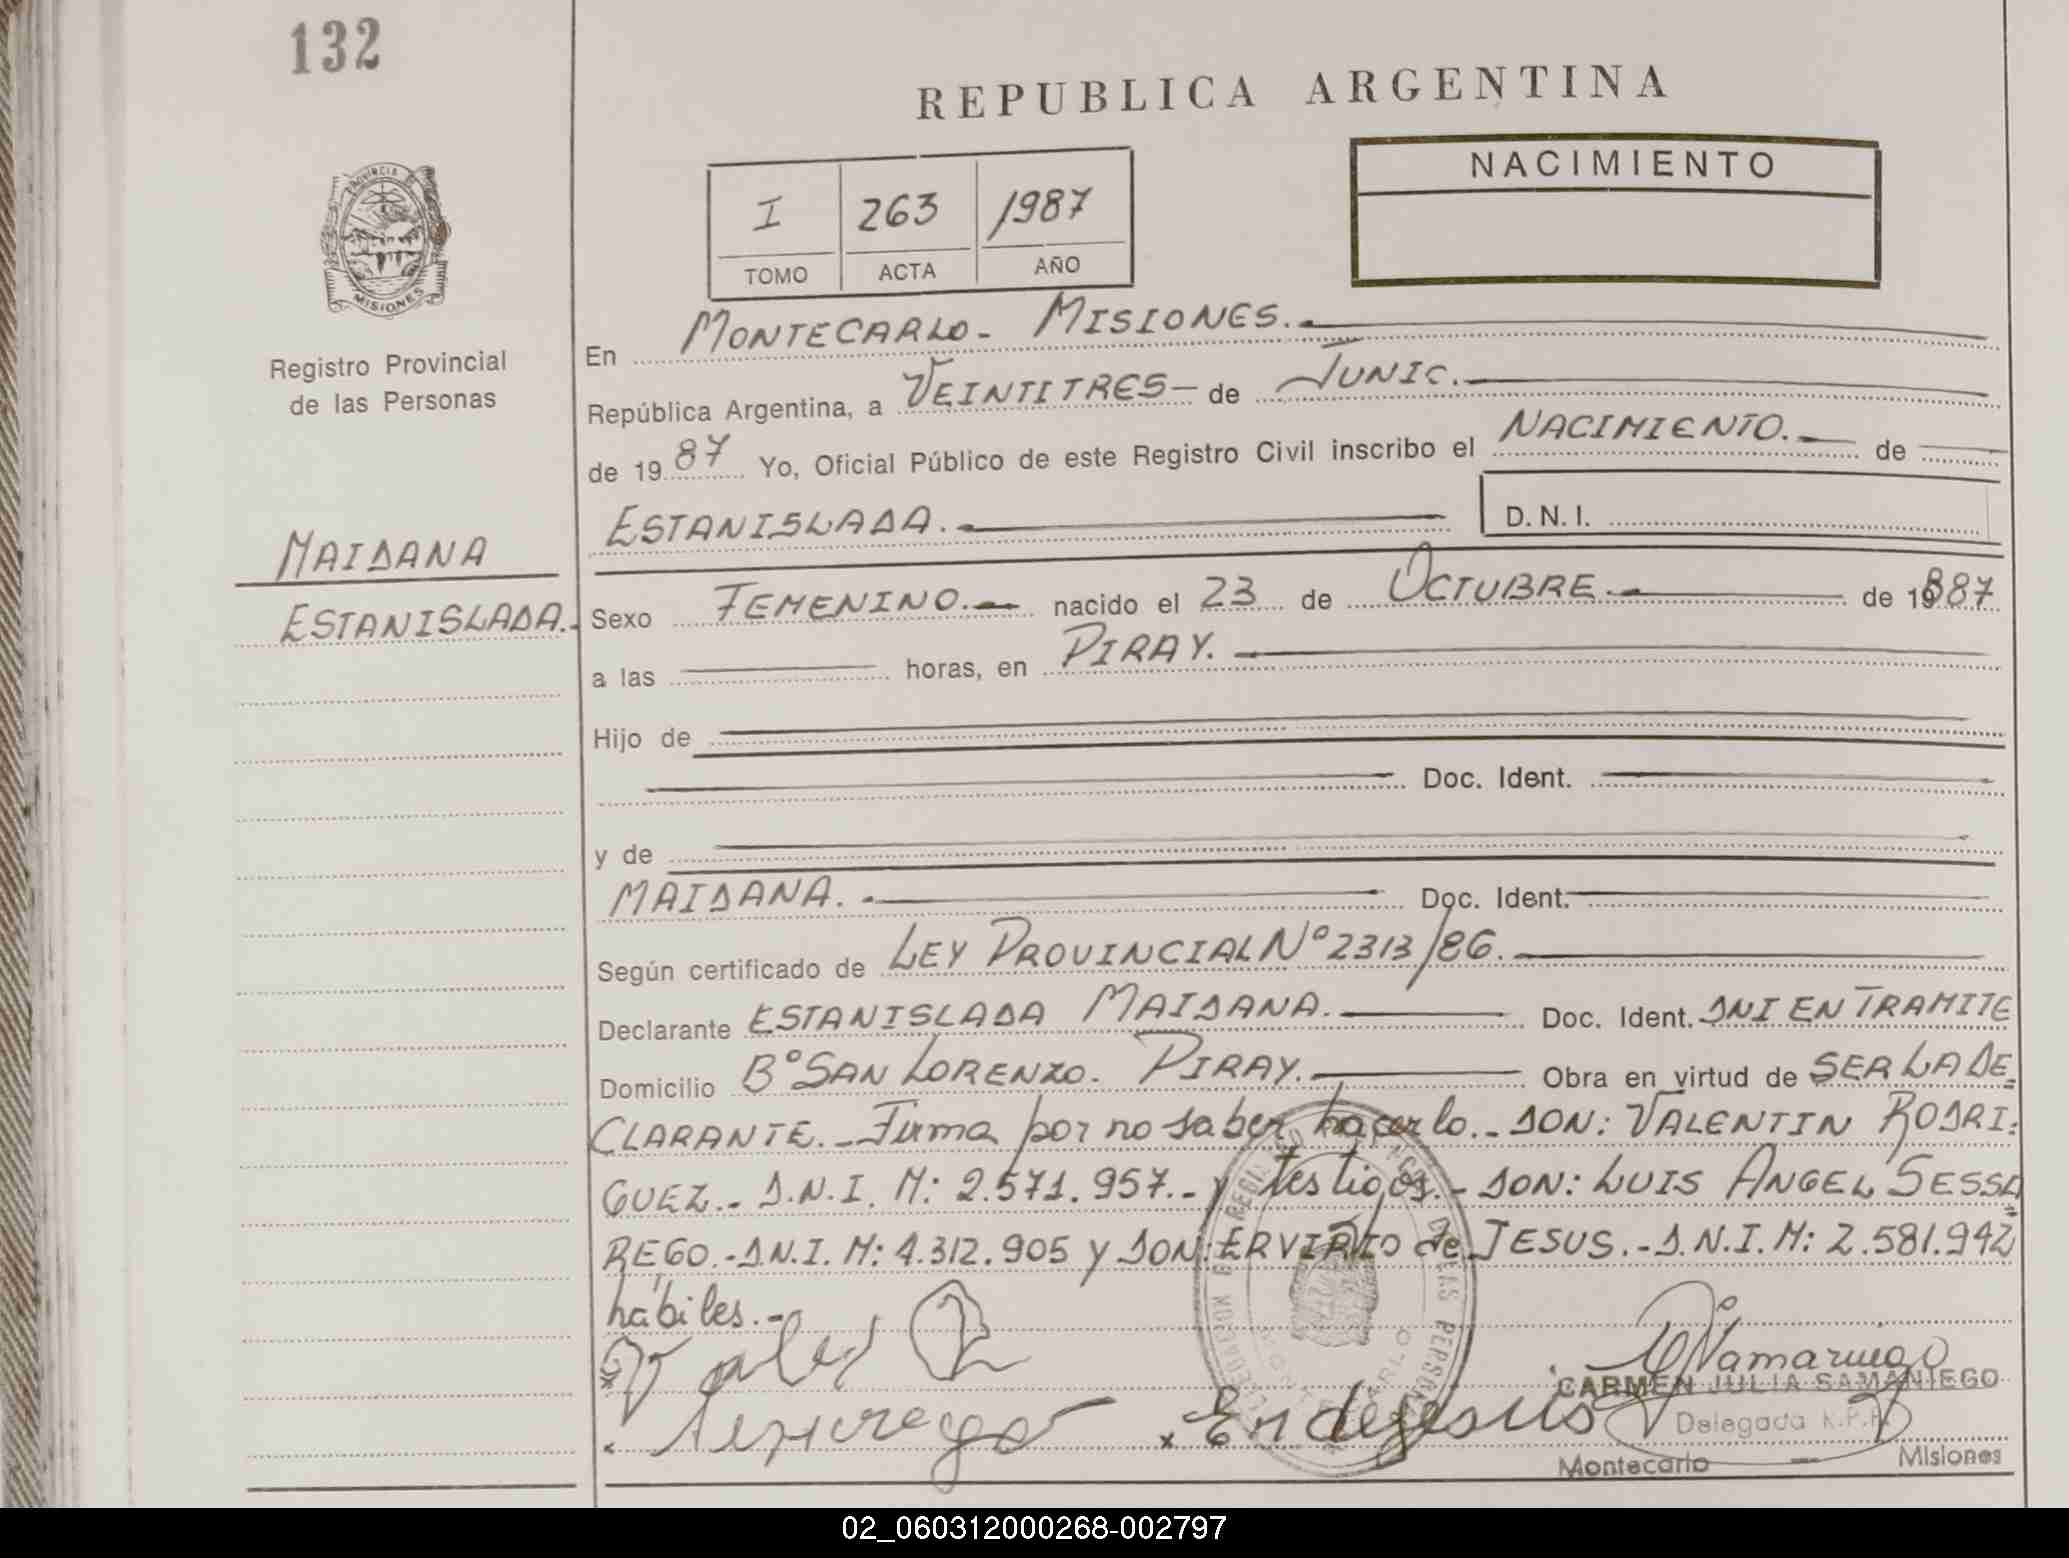 132
REPUBLICA ARGENTINA
NACIMIENTO
I 263 1987
TOMO ACTA AÑO
PROVINCIA DE
MISIONES
Registro Provincial
de las Personas
MAIDANA
ESTANISLADA.
En MONTECARLO- MISIONES.
República Argentina, a VEINTITRES- de JUNIO.
de 1987 Yo, Oficial Público de este Registro Civil inscribo el NACIMIENTO. de
ESTANISLADA. D.N.I.
Sexo FEMENINO. nacido el 23 de OCTUBRE de 1887
a las horas, en PIRAY.
Hijo de
Doc. Ident.
y de
MAIDANA. Doc. Ident.
Según certificado de LEY PROVINCIAL Nº 2313/86.
Declarante ESTANISLADA MAIDANA. Doc. Ident. DNI EN TRAMITE
Domicilio Bº SAN LORENZO. PIRAY. Obra en virtud de SER LA DE=
CLARANTE.-Firma por no saber hacerlo.- DON: VALENTIN RODRI=
GUEZ.- D.N.I. M: 2.571.957.- y testigos.- DON: LUIS ANGEL SESSA=
REGO.-D.N.I. M: 4.312.905 y DON: ERVIRIO de JESUS.-D.N.I.M: 2.581.942
hábiles.-
CARMEN JULIA SAMANIEGO
Delegada R.P.P.
Montecarlo - Misiones
02_060312000268-002797